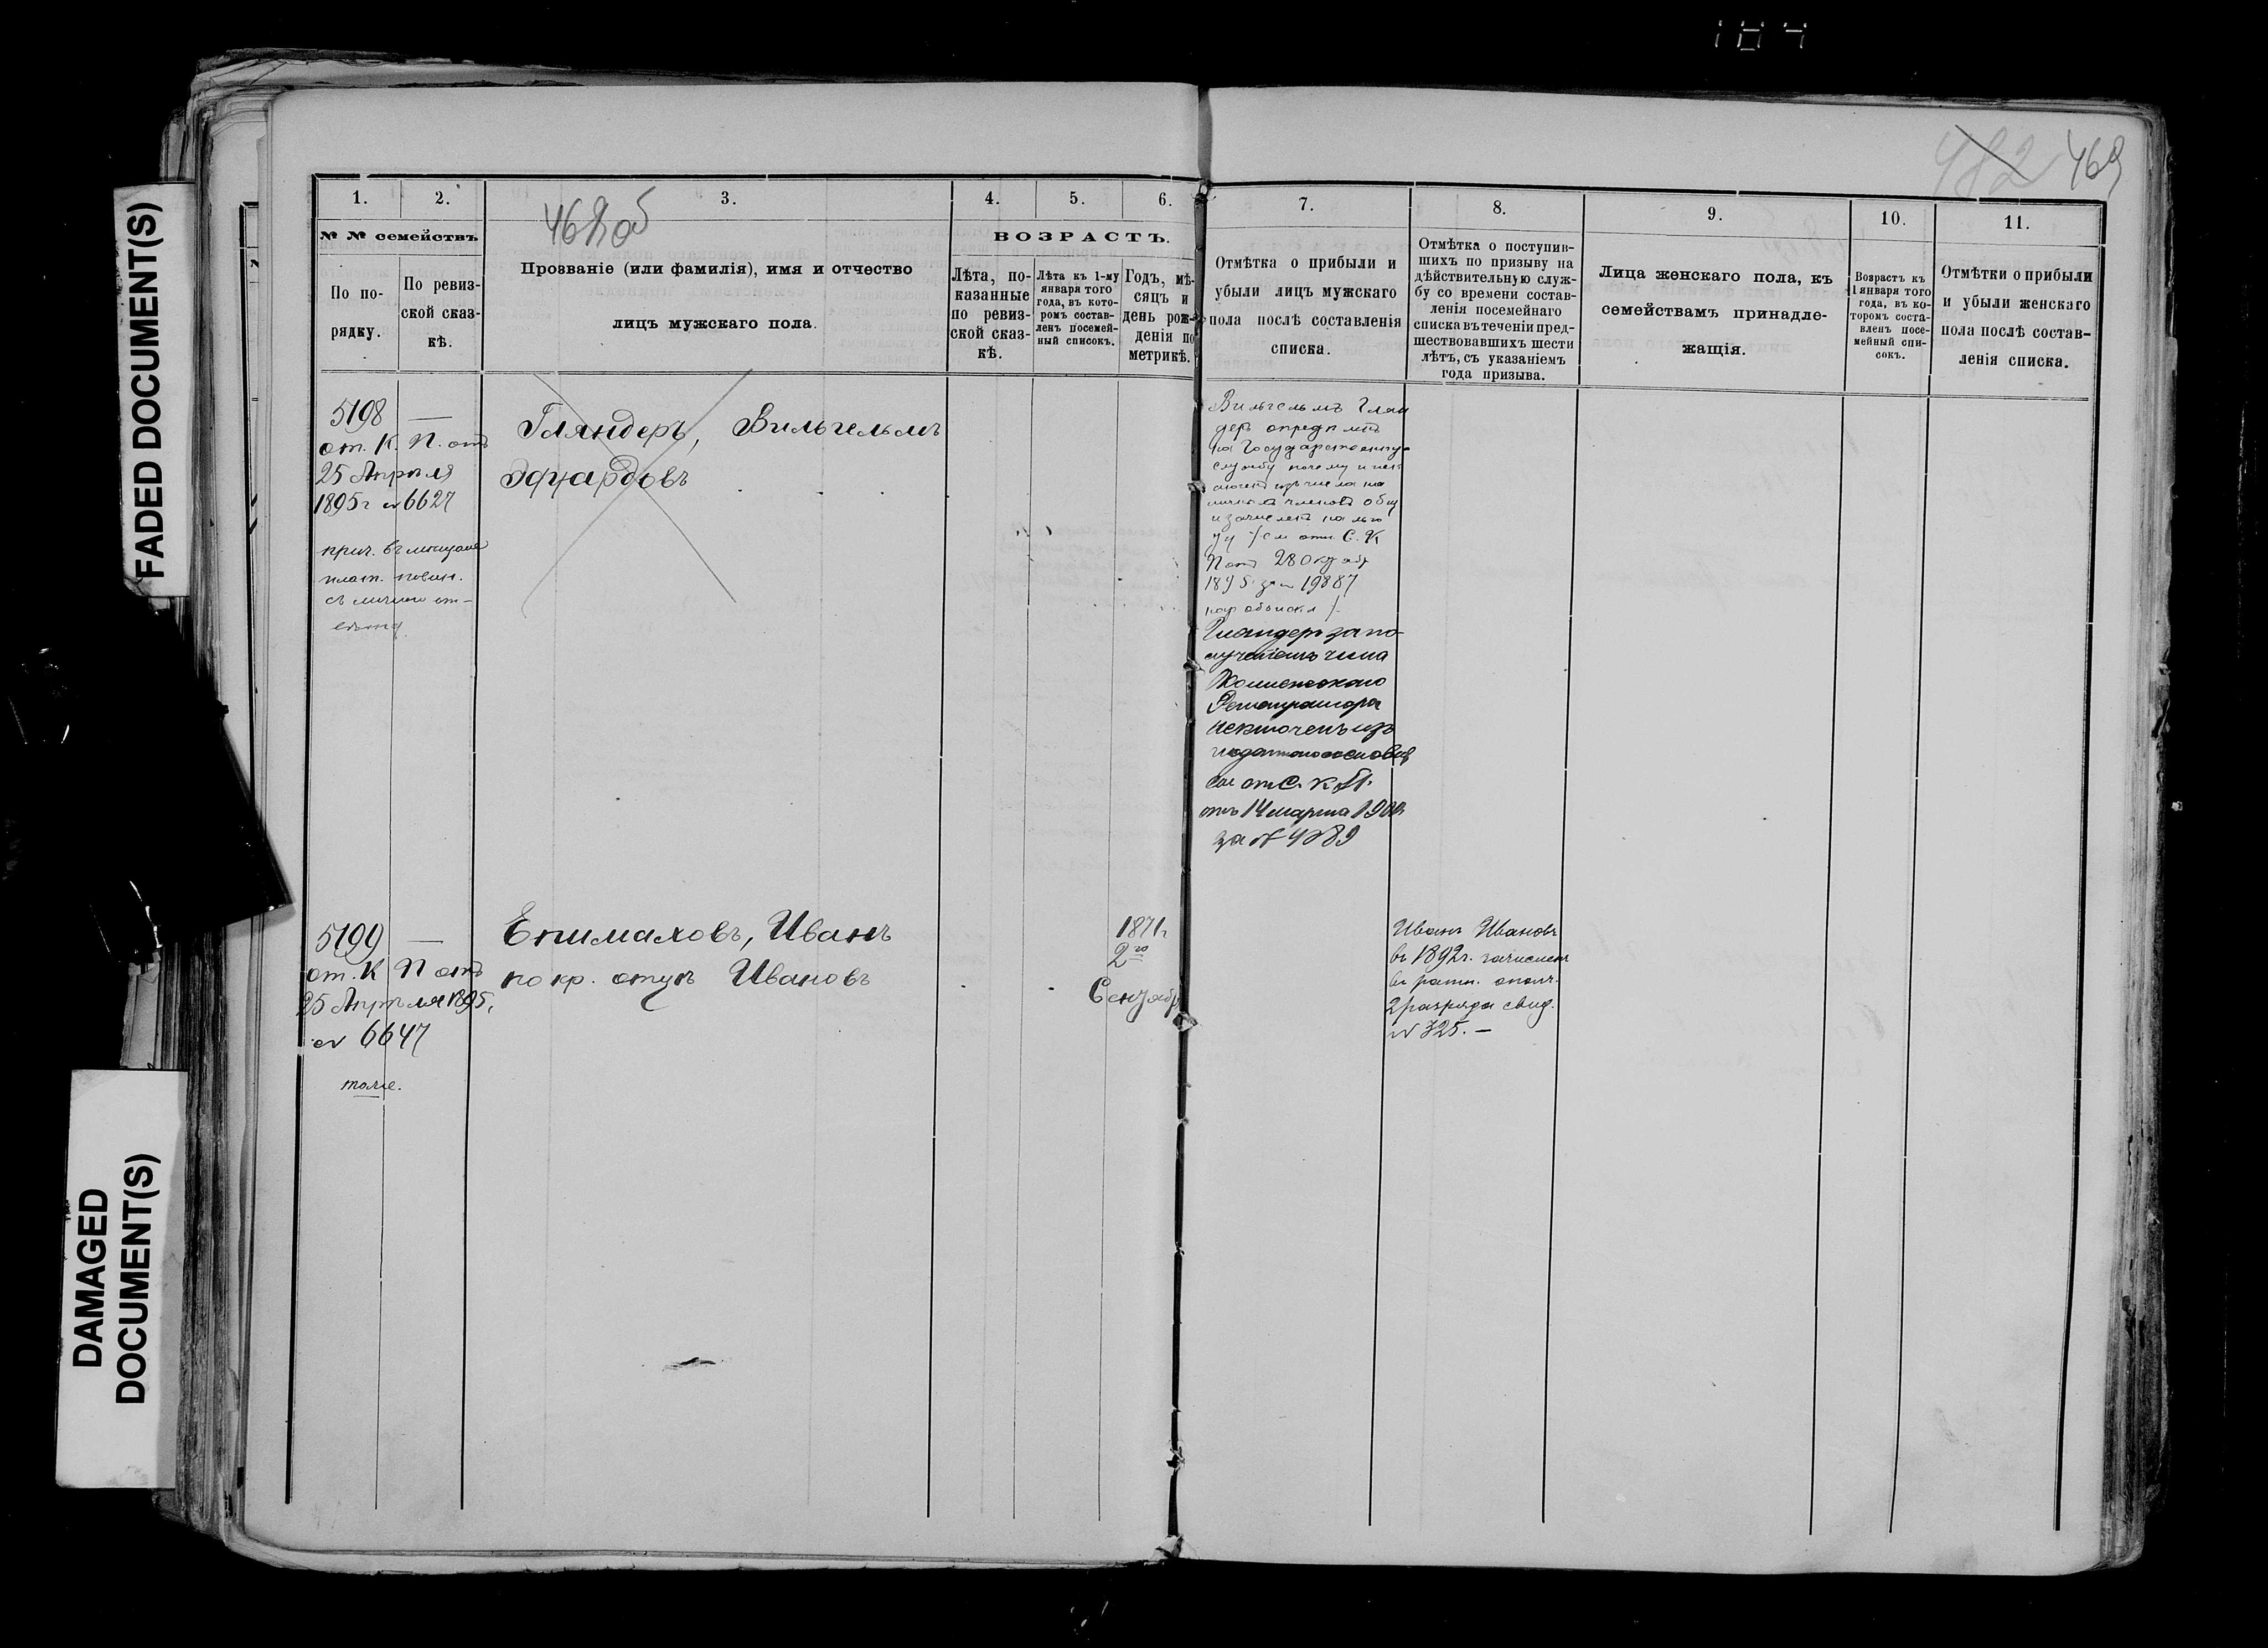 184
482 469
468 об
1. 2. 3. 4. 5. 6. 7. 8. 9. 10. 11.
№ № семействъ
По по-
рядку.
По ревиз-
ской сказ-
кѣ.
Прозваніе (или фамилія), имя и отчество
лицъ мужскаго пола.
ВОЗРАСТЪ.
Лѣта, по-
казанные
по ревиз-
ской сказ-
кѣ.
Лѣта къ 1-му
января того
года, въ кото-
ромъ состав-
ленъ посемей-
ный списокъ.
Годъ, мѣ-
сяцъ и
день рож-
денія по
метрикѣ.
Отмѣтка о прибыли и
убыли лицъ мужскаго
пола послѣ составленія
списка.
Отмѣтка о поступив-
шихъ по призыву на
дѣйствительную служ-
бу со времени состав-
ленія посемейнаго
списка въ теченіи пред-
шествовавшихъ шести
лѣтъ, съ указаніемъ
года призыва.
Лица женскаго пола, къ
семействамъ принадле-
жащія.
Возрастъ къ
1 января того
года, въ ко-
торомъ соста-
вленъ посе-
мейный спи-
сокъ.
Отмѣтки о прибыли
и убыли женскаго
пола послѣ состав-
ленія списка.
5198 —
от. К. П. отъ
25 Апрѣля
1895 г № 6627
прич. въ мѣщане
плат. повин.
съ личною от-
Гляндеръ, Вильгельмъ
Эдуардовъ
Вильгельмъ Глян
деръ опредѣленъ
на Государственную
службу почему и иск
лоченъ изъ числа на
личныхъ членовъ общ
и зачисленъ на льго
ту /см отн. С. К
П отъ 28 Октябр
1895 за № 19887
Гляндеръ за по-
лученіемъ чина
Коллежскаго
Регистратора
исключенъ изъ
податнаго сословія
см от С. К. П.
отъ 14 марта 190
за №
5199 —
от. К П отъ
25 Апрѣля 1895 г
№ 6647
тоже.
Епималовъ, Иванъ
по кр. отцѣ Ивановъ
1871 г
2го
Сентябр
Иванъ Ивановъ
въ 1892 г. зачисленъ
въ ратн. ополч.
2 разряда свид.
№ 325. —
FADED DOCUMENT(S)
DAMAGED
DOCUMENT(S)